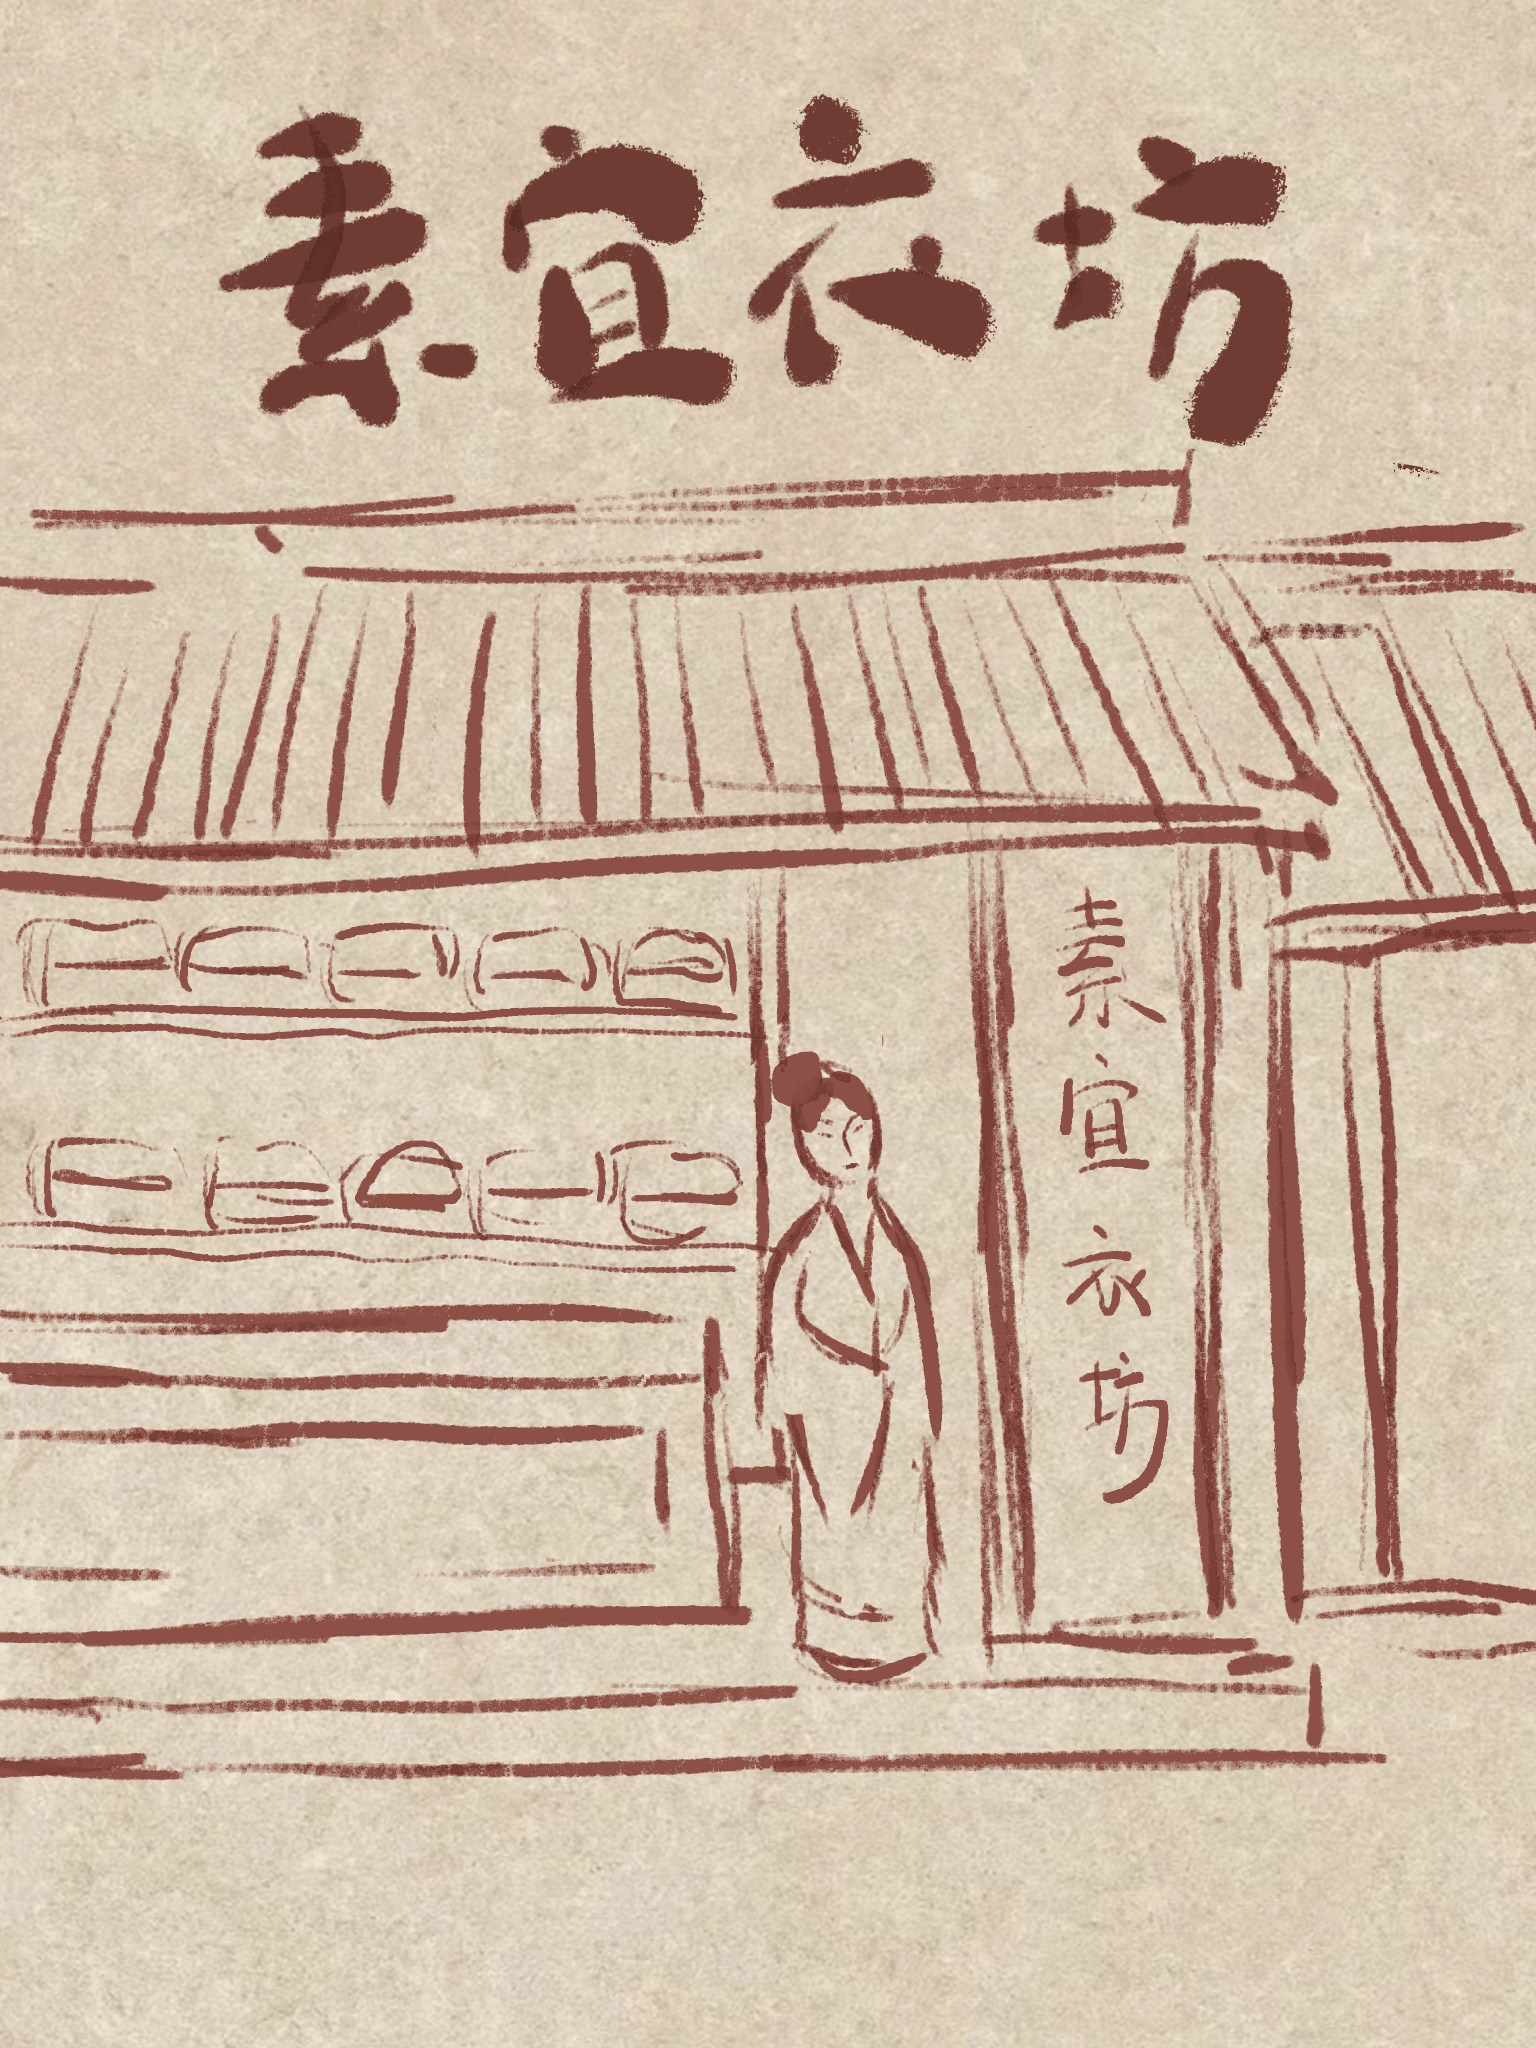 素宜衣坊
素宜衣坊